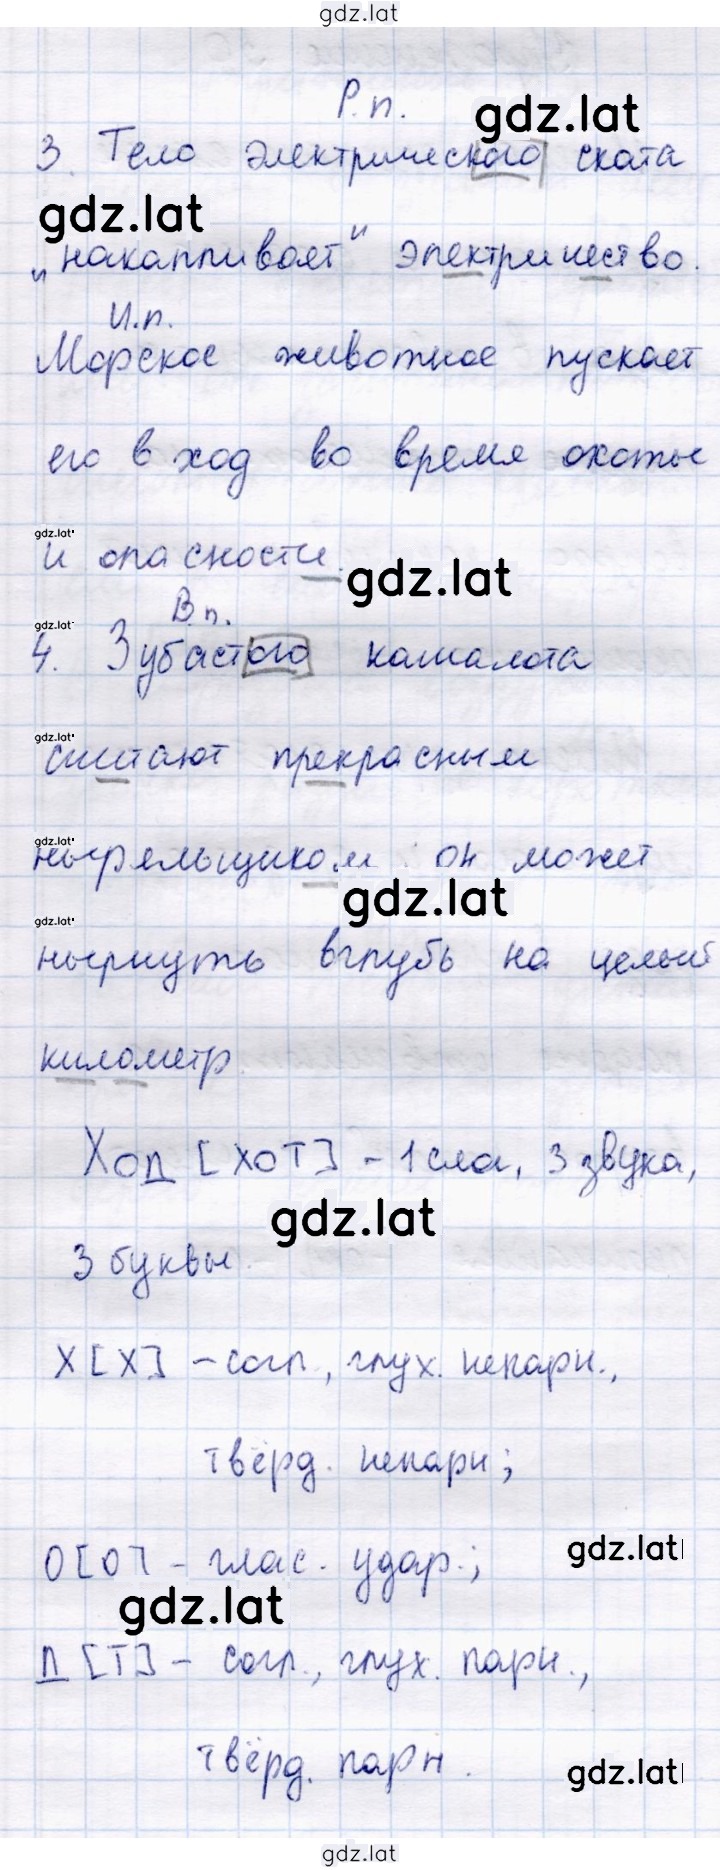 gdz.lat
Р.п.
gdz.lat
3. Тело электрического ската
gdz.lat
„накапливает" электричество.
И.п.
Морское животное пускает
его в ход во время охоты
gdz.lat
и опасности.
gdz.lat
В.п.
gdz.lat
4. Зубастого кашалота
gdz.lat
считают прекрасным
gdz.lat
ныряльщиком: он может
gdz.lat
gdz.lat
нырнуть вглубь на целый
километр.
Ход [хот] - 1 слог, 3 звука,
gdz.lat
3 буквы.
Х [х] - согл., глух. непарн.,
твёрд. непарн;
gdz.lat
О [о] - глас. удар.;
gdz.lat
Д [т] - согл., глух. парн.,
твёрд. парн.
gdz.lat
gdz.lat